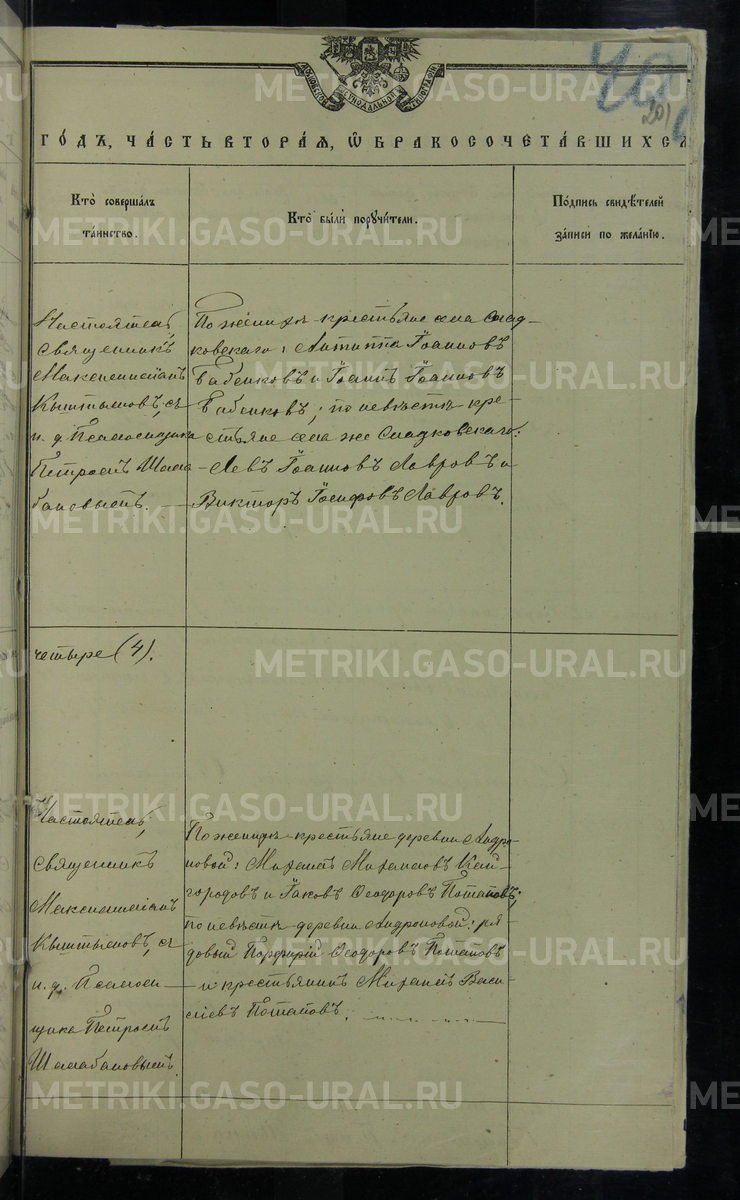 МОСКОВСКОЙ СУНОДАЛЬНОЙ ТИПОГРАФІИ
201
ГО́ДЪ, ЧА́СТЬ ВТОРА́Я, Ѽ БРАКОСОЧЕТА́ВШИХСЯ
Кто̀ соверша́лъ
та́инство.
Кто̀ бы́ли порꙋчи́тели.
По́дпись свидѣ́телей
за́писи по жела́нїю.
Настоятель,
священникъ
Максимиліанъ
Кыштымовъ, съ
и. д. Псаломщика
Петромъ Шала
бановымъ.
По женихѣ крестьяне села Слад-
ковскаго: Антипа Іоанновъ
Бабенковъ и Іоаннъ Іоанновъ
Бабенковъ; по невѣстѣ кре-
стьяне села же Сладковскаго:
Левъ Іоанновъ Лавровъ и
Викторъ Іосифовъ Лавровъ.
четыре (4).
Настоятель,
священникъ
Максимиліанъ
Кыштымовъ, съ
и. д. Псалом-
щика Петромъ
Шалабановымъ.
По женихѣ крестьяне деревни Андро
новой: Михаилъ Михаиловъ Кай-
городовъ и Іаковъ Ѳеодоровъ Потаповъ;
по невѣстѣ деревни Андроновой: ря
довый Порфирій Ѳеодоровъ Потаповъ
и крестьянинъ Михаилъ Васи
ліевъ Потаповъ.
METRIKI.GASO-URAL.RU